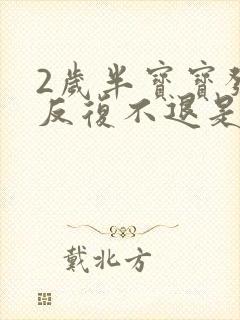 2歲半寶寶發
反復不退是
戴北方